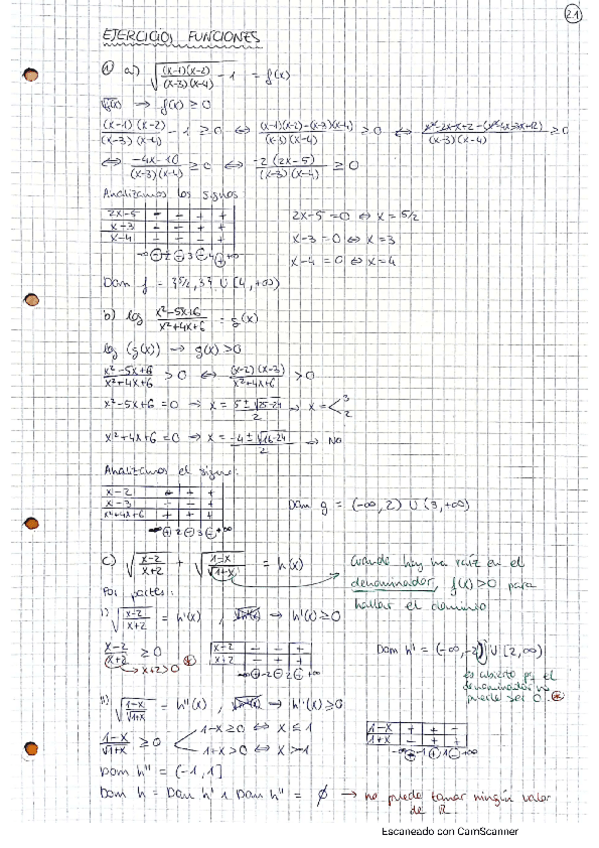 21
EJERCICIOS FUNCIONES
① a) √((x-1)(x-2)/((x-3)(x-4)) - 1) = f(x)
√f(x) → f(x) ≥ 0
(x-1)(x-2)/((x-3)(x-4)) - 1 ≥ 0 ⇔ ((x-1)(x-2)-(x-3)(x-4))/((x-3)(x-4)) ≥ 0 ⇔ (x²-2x-x+2-(x²-4x-3x+12))/((x-3)(x-4)) ≥ 0
⇔ (-4x-10)/((x-3)(x-4)) ≥ 0 ⇔ -2(2x-5)/((x-3)(x-4)) ≥ 0
Analizamos los signos
2x-5 - - + + 2x-5=0 ⇔ x=5/2
x-3 - - + + x-3=0 ⇔ x=3
x-4 - - - + x-4=0 ⇔ x=4
Dom f = {5/2, 3} ∪ [4, +∞)
b) log (x²-5x+6)/(x²+4x+6) = g(x)
log (g(x)) → g(x)>0
(x²-5x+6)/(x²+4x+6) > 0 ⇔ (x-2)(x-3)/(x²+4x+6) > 0
x²-5x+6=0 → x = (5±√(25-24))/2 → x = < 3 2
x²+4x+6=0 → x = (-4±√(16-24))/2 → No
Analizamos el signo:
x-2 + +
x-3 - - +
x²+4x+6 + + +
-∞ ⊕ 2 ⊖ 3 ⊕ +∞
Dom g = (-∞, 2) ∪ (3, +∞)
c) √((x-2)/(x+2)) + √((1-x)/√(1+x)) = h(x)
Cuando hay una raíz en el
denominador, f(x)>0 para
hallar el dominio
Por partes:
i) √((x-2)/(x+2)) = h'(x), → h'(x) ≥ 0
(x-2)/(x+2) ≥ 0
x+2>0
x-2 - - +
x+2 - + +
-∞ ⊕ -2 ⊖ 2 ⊕ +∞
Dom h' = (-∞, -2) ∪ [2, ∞)
es abierto pq el
denominador no
puede ser 0.
ii) √((1-x)/√(1+x)) = h''(x), → h''(x) ≥ 0
(1-x)/√(1+x) ≥ 0
1-x≥0 ⇔ x≤1
1+x>0 ⇔ x>-1
1-x + + -
1+x - + +
Dom h'' = (-1, 1]
Dom h = Dom h' ∩ Dom h'' = ∅ → no puede tomar ningún valor
de ℝ.
Escaneado con CamScanner